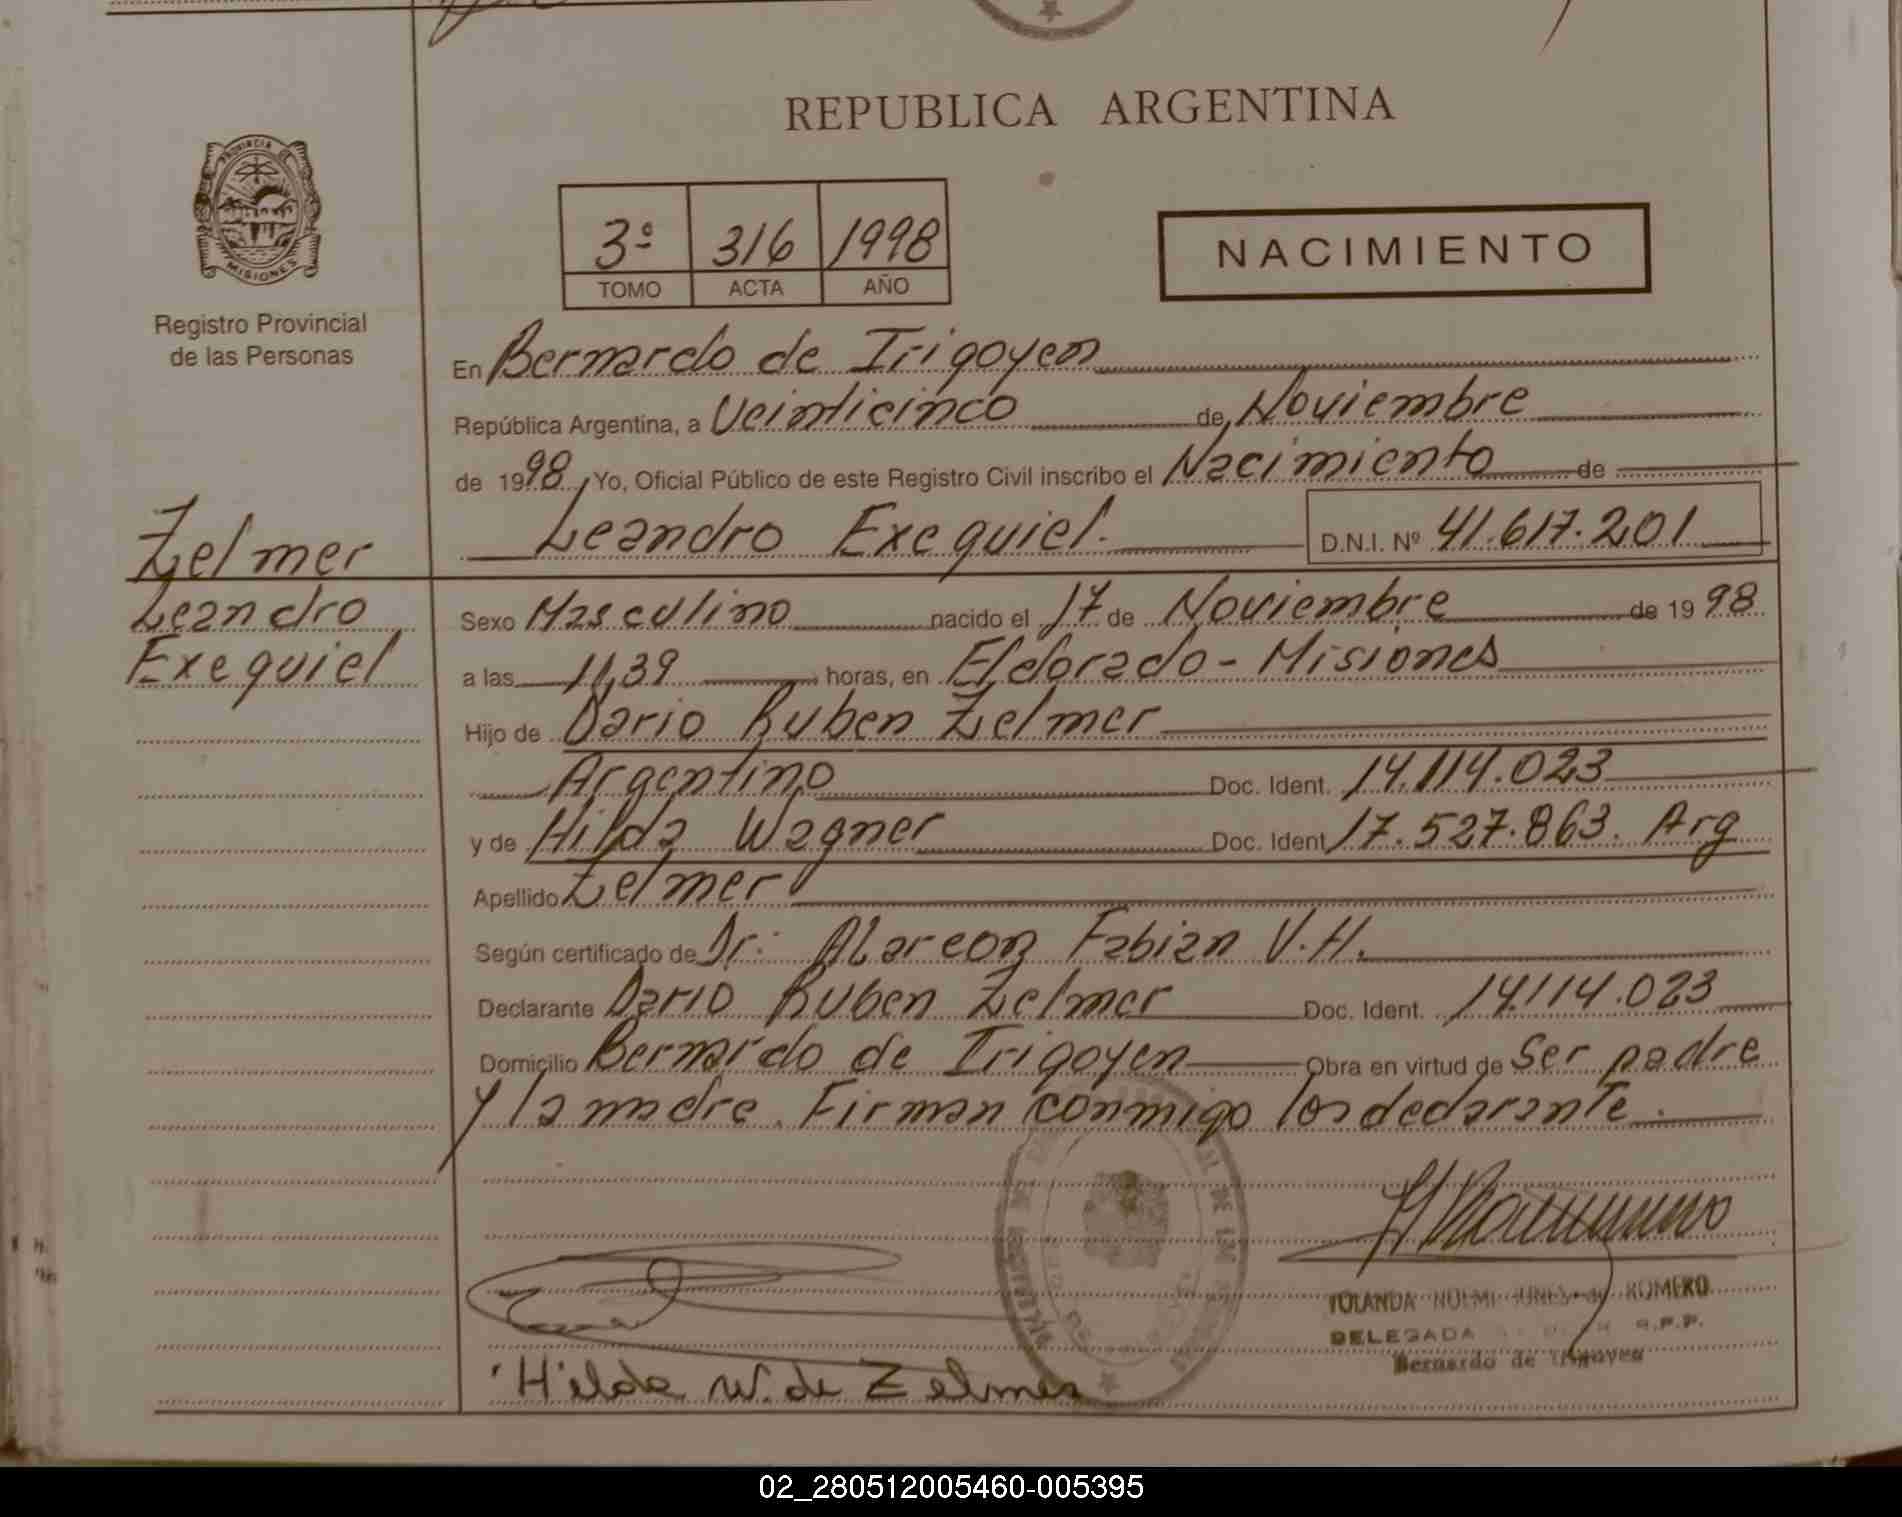 REPUBLICA ARGENTINA
PROVINCIA DE
MISIONES
Registro Provincial
de las Personas
3º 316 1998
TOMO ACTA AÑO
NACIMIENTO
En Bernardo de Irigoyen
República Argentina, a Veinticinco de Noviembre
de 1998 Yo, Oficial Público de este Registro Civil inscribo el Nacimiento de
Leandro Exequiel. D.N.I. Nº 41.617.201
Zelmer
Leandro
Exequiel
Sexo Masculino nacido el 17 de Noviembre de 1998
a las 11,39 horas, en Eldorado - Misiones
Hijo de Dario Ruben Zelmer
Argentino Doc. Ident. 14.114.023
y de Hilda Wagner Doc. Ident 17.527.863. Arg
Apellido Zelmer
Según certificado de Dr: Alarcon Fabian V.H.
Declarante Dario Ruben Zelmer Doc. Ident. 14.114.023
Domicilio Bernardo de Irigoyen Obra en virtud de Ser padre
y la madre. Firman conmigo los declarante.
YOLANDA NOEMI de ROMERO
DELEGADA R.P.P.
Bernardo de Irigoyen
Hilda W. de Zelmer
02_280512005460-005395